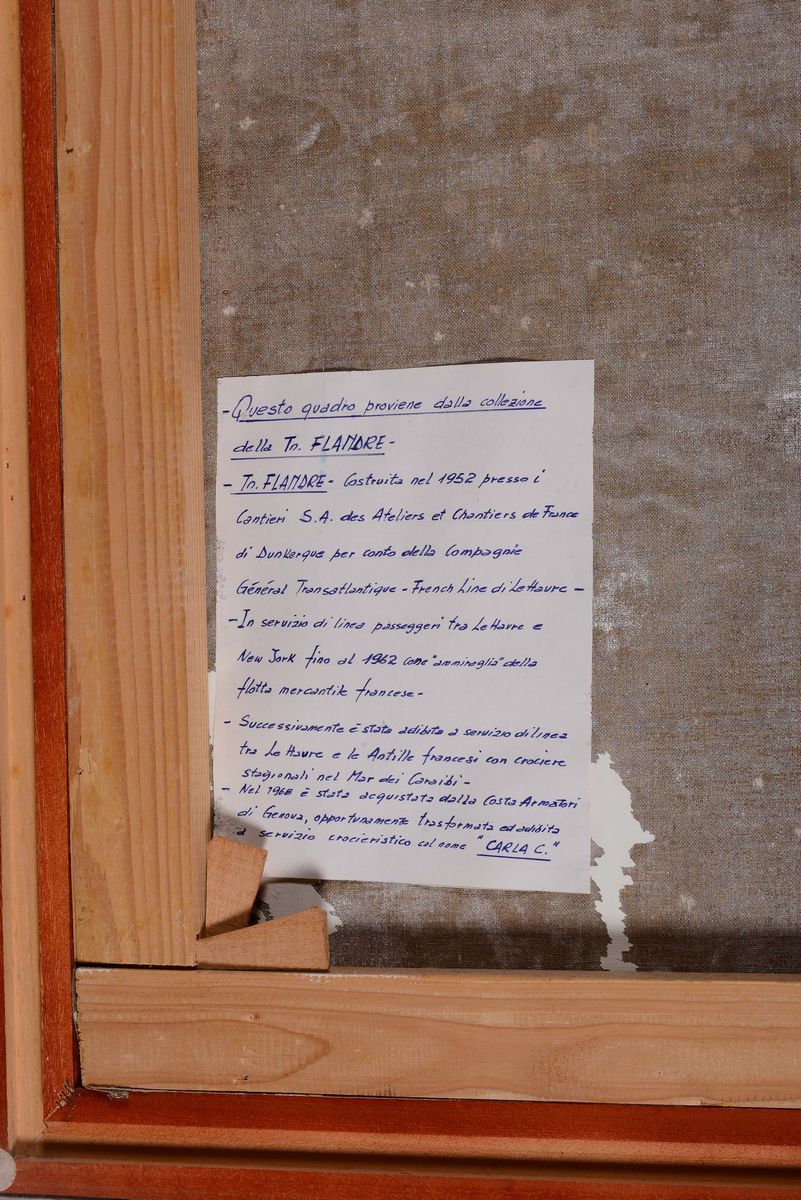 - Questo quadro proviene dalla collezione
della Tn. FLANDRE -
- Tn. FLANDRE - Costruita nel 1952 presso i
Cantieri S.A. des Ateliers et Chantiers de France
di Dunkerque per conto della Compagnie
Général Transatlantique - French Line di Le Havre -
- In servizio di linea passeggeri tra Le Havre e
New Jork fino al 1962 come "ammiraglia" della
flotta mercantile francese -
- Successivamente è stata adibita a servizio di linea
tra Le Havre e le Antille francesi con crociere
stagionali nel Mar dei Caraibi -
- Nel 1968 è stata acquistata dalla Costa Armatori
di Genova, opportunamente trasformata ed adibita
a servizio crocieristico col nome "CARLA C."